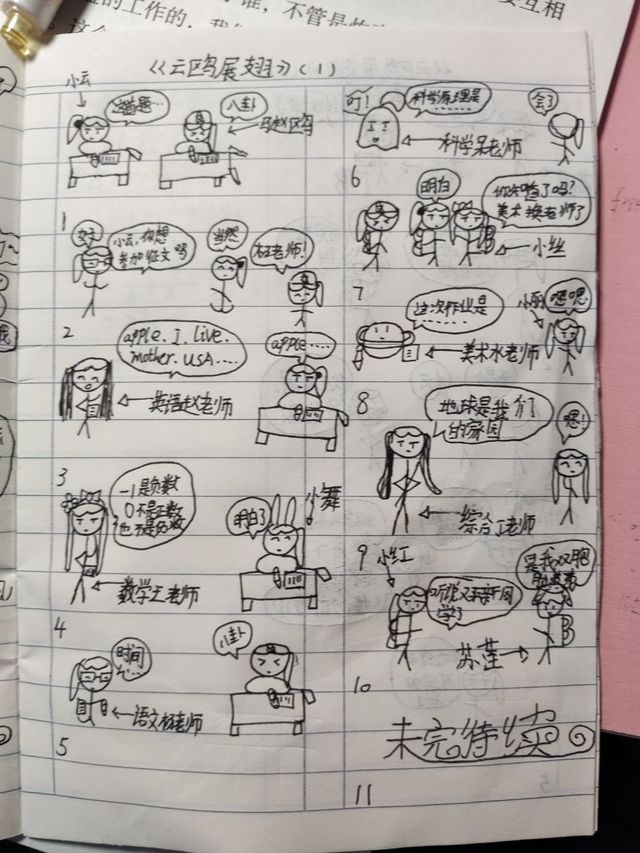 《云鸥展翅》(1)
小云
八卦
1
好
小云,你想
参加征文吗
当然
杜老师!
2
apple. I. live.
mother. USA....
英语赵老师
apple....
3
-1是负数
0不是正数
也不是负数
数学王老师
明白了
小舞
4
时间
语文杜老师
八卦
5
叮!
科学原理是
科学呆老师
会了
6
明白
你知道了吗?
美术换老师了
小丝
7
这次作业是
美术水老师
小丽
嗯嗯
8
地球是我们
的家园
综合江老师
嗯!
9
小红
听说又来新同
学了
是我双胞
苏莲
10
未完待续
11